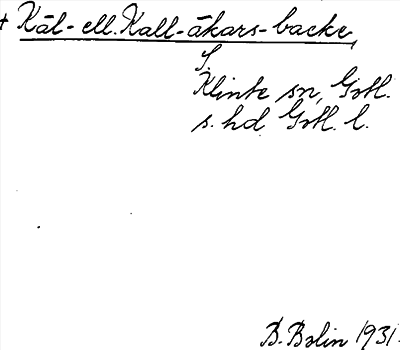 + Kål- ell. Kall-åkars-backe,
S.
Klinte sn, Gotl.
s. hd Gotl. l.
B. Bolin 1931.